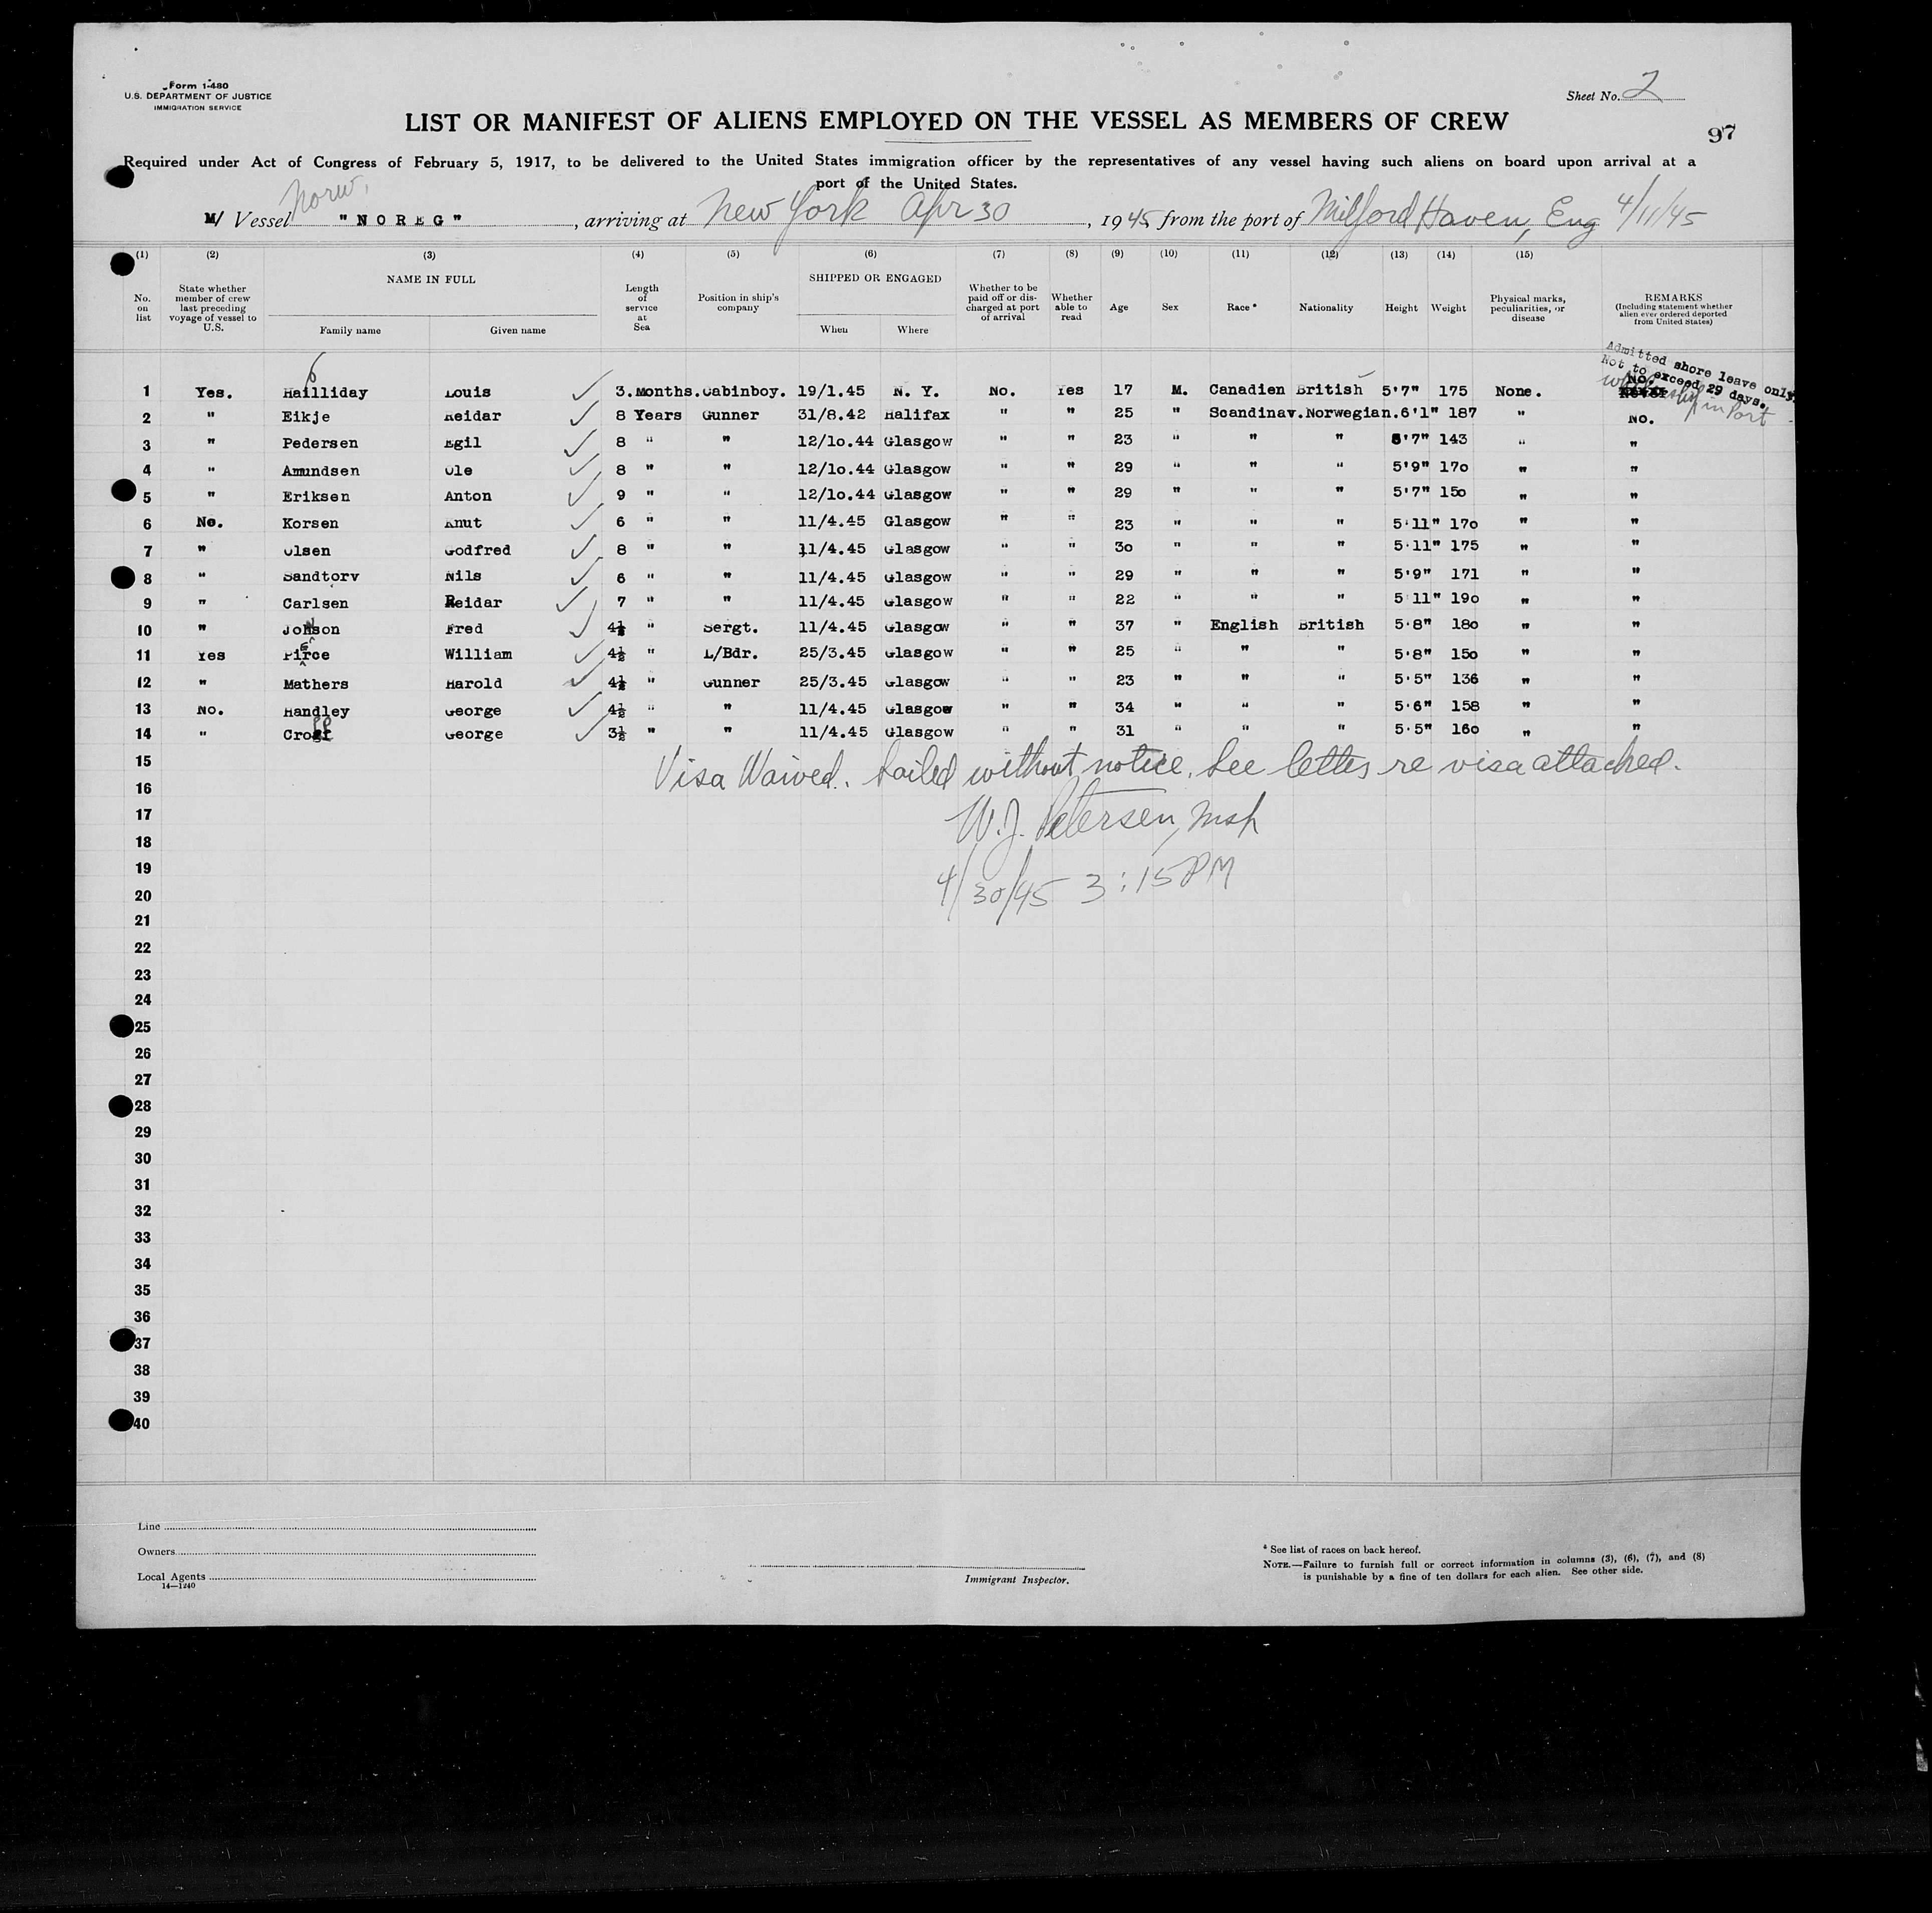 Form 1-480
U.S. DEPARTMENT OF JUSTICE
IMMIGRATION SERVICE
Sheet No. 2
LIST OR MANIFEST OF ALIENS EMPLOYED ON THE VESSEL AS MEMBERS OF CREW
97
Required under Act of Congress of February 5, 1917, to be delivered to the United States immigration officer by the representatives of any vessel having such aliens on board upon arrival at a
port of the United States.
Norw.
M/ Vessel "NOREG", arriving at New York Apr 30, 1945, from the port of Milford Haven, Eng 4/11/45
(1) (2) (3) (4) (5) (6) (7) (8) (9) (10) (11) (12) (13) (14) (15)
No. on list
State whether member of crew last preceding voyage of vessel to U.S.
NAME IN FULL
Family name
Given name
Length of service at Sea
Position in ship's company
SHIPPED OR ENGAGED
When
Where
Whether to be paid off or discharged at port of arrival
Whether able to read
Age
Sex
Race *
Nationality
Height
Weight
Physical marks, peculiarities, or disease
REMARKS
(Including statement whether alien ever ordered deported from United States)
Admitted shore leave only.
Not to exceed 29 days.
while ship in Port
1 Yes. Hailliday Louis 3.Months. Cabinboy. 19/1.45 N. Y. No. Yes 17 M. Canadien British 5'7" 175 None. No.
2 " Eikje Reidar 8 Years Gunner 31/8.42 Halifax " " 25 " Scandinav. Norwegian. 6'1" 187 " No.
3 " Pedersen Egil 8 " " 12/10.44 Glasgow " " 23 " " " 5'7" 143 " "
4 " Amundsen Ole 8 " " 12/10.44 Glasgow " " 29 " " " 5'9" 170 " "
5 " Eriksen Anton 9 " " 12/10.44 Glasgow " " 29 " " " 5'7" 150 " "
6 No. Korsen Knut 6 " " 11/4.45 Glasgow " " 23 " " " 5'11" 170 " "
7 " Olsen Godfred 8 " " 11/4.45 Glasgow " " 30 " " " 5'11" 175 " "
8 " Sandtorv Nils 6 " " 11/4.45 Glasgow " " 29 " " " 5'9" 171 " "
9 " Carlsen Reidar 7 " " 11/4.45 Glasgow " " 22 " " " 5'11" 190 " "
10 " Johnson Fred 4½ " Sergt. 11/4.45 Glasgow " " 37 " English British 5'8" 180 " "
11 Yes Pierce William 4½ " L/Bdr. 25/3.45 Glasgow " " 25 " " " 5'8" 150 " "
12 " Mathers Harold 4½ " Gunner 25/3.45 Glasgow " " 23 " " " 5'5" 136 " "
13 No. Handley George 4½ " " 11/4.45 Glasgow " " 34 " " " 5'6" 158 " "
14 " George 3½ " " 11/4.45 Glasgow " " 31 " " " 5'5" 160 " "
15
Visa Waived. Sailed without notice. See letter re visa attached.
16
17
W.J. Petersen, Insp
18
19
4/30/45 3:15 PM
20
21
22
23
24
25
26
27
28
29
30
31
32
33
34
35
36
37
38
39
40
Line
Owners
Local Agents
14—1240
Immigrant Inspector.
* See list of races on back hereof.
NOTE.—Failure to furnish full or correct information in columns (3), (6), (7), and (8)
is punishable by a fine of ten dollars for each alien. See other side.